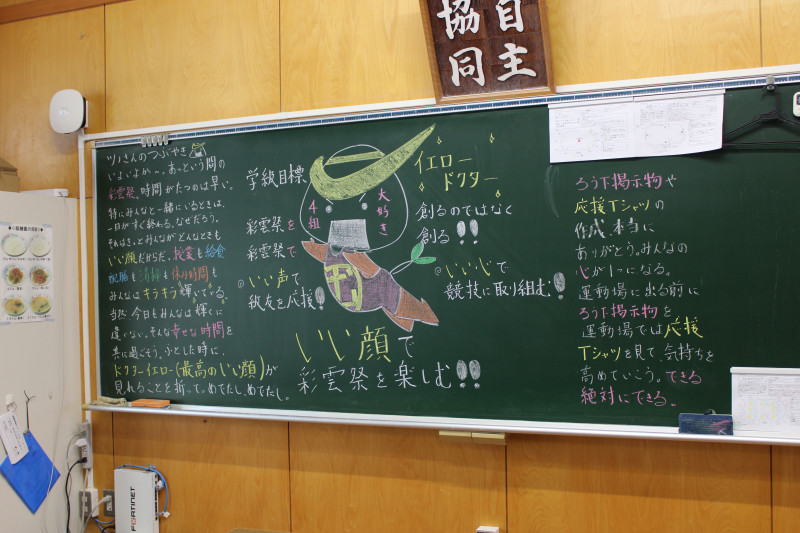 協 自
同 主
ツノさんのつぶやき
いよいよか〜。あっという間の
彩雲祭。時間がたつのは早い。
特にみんなと一緒にいるときは、
一日がすぐ終わる。なぜだろう。
それはきっとみんながどんなときも
いい顔だからだ。授業も給食
配膳も清掃も休み時間も
みんなはキラキラ輝いている。
当然今日もみんなは輝くに
違いない。そんな幸せな時間を
共に過ごそう。ふとした時に、
ドクターイエロー(最高のいい顔)が
見れることを祈って。めでたし、めでたし。
学級目標
彩雲祭を
彩雲祭で
◎いい声で
級友を応援!!
4組
大好き
イエロー
ドクター
創るのではなく
創る!!
◎いい心で
競技に取り組む!!
いい顔で
彩雲祭を楽しむ!!
ろう下掲示物や
応援Tシャツの
作成、本当に
ありがとう。みんなの
心が1つになる。
運動場に出る前に
ろう下掲示物を
運動場では応援
Tシャツを見て、気持ちを
高めていこう。できる
絶対にできる。
FORTINET